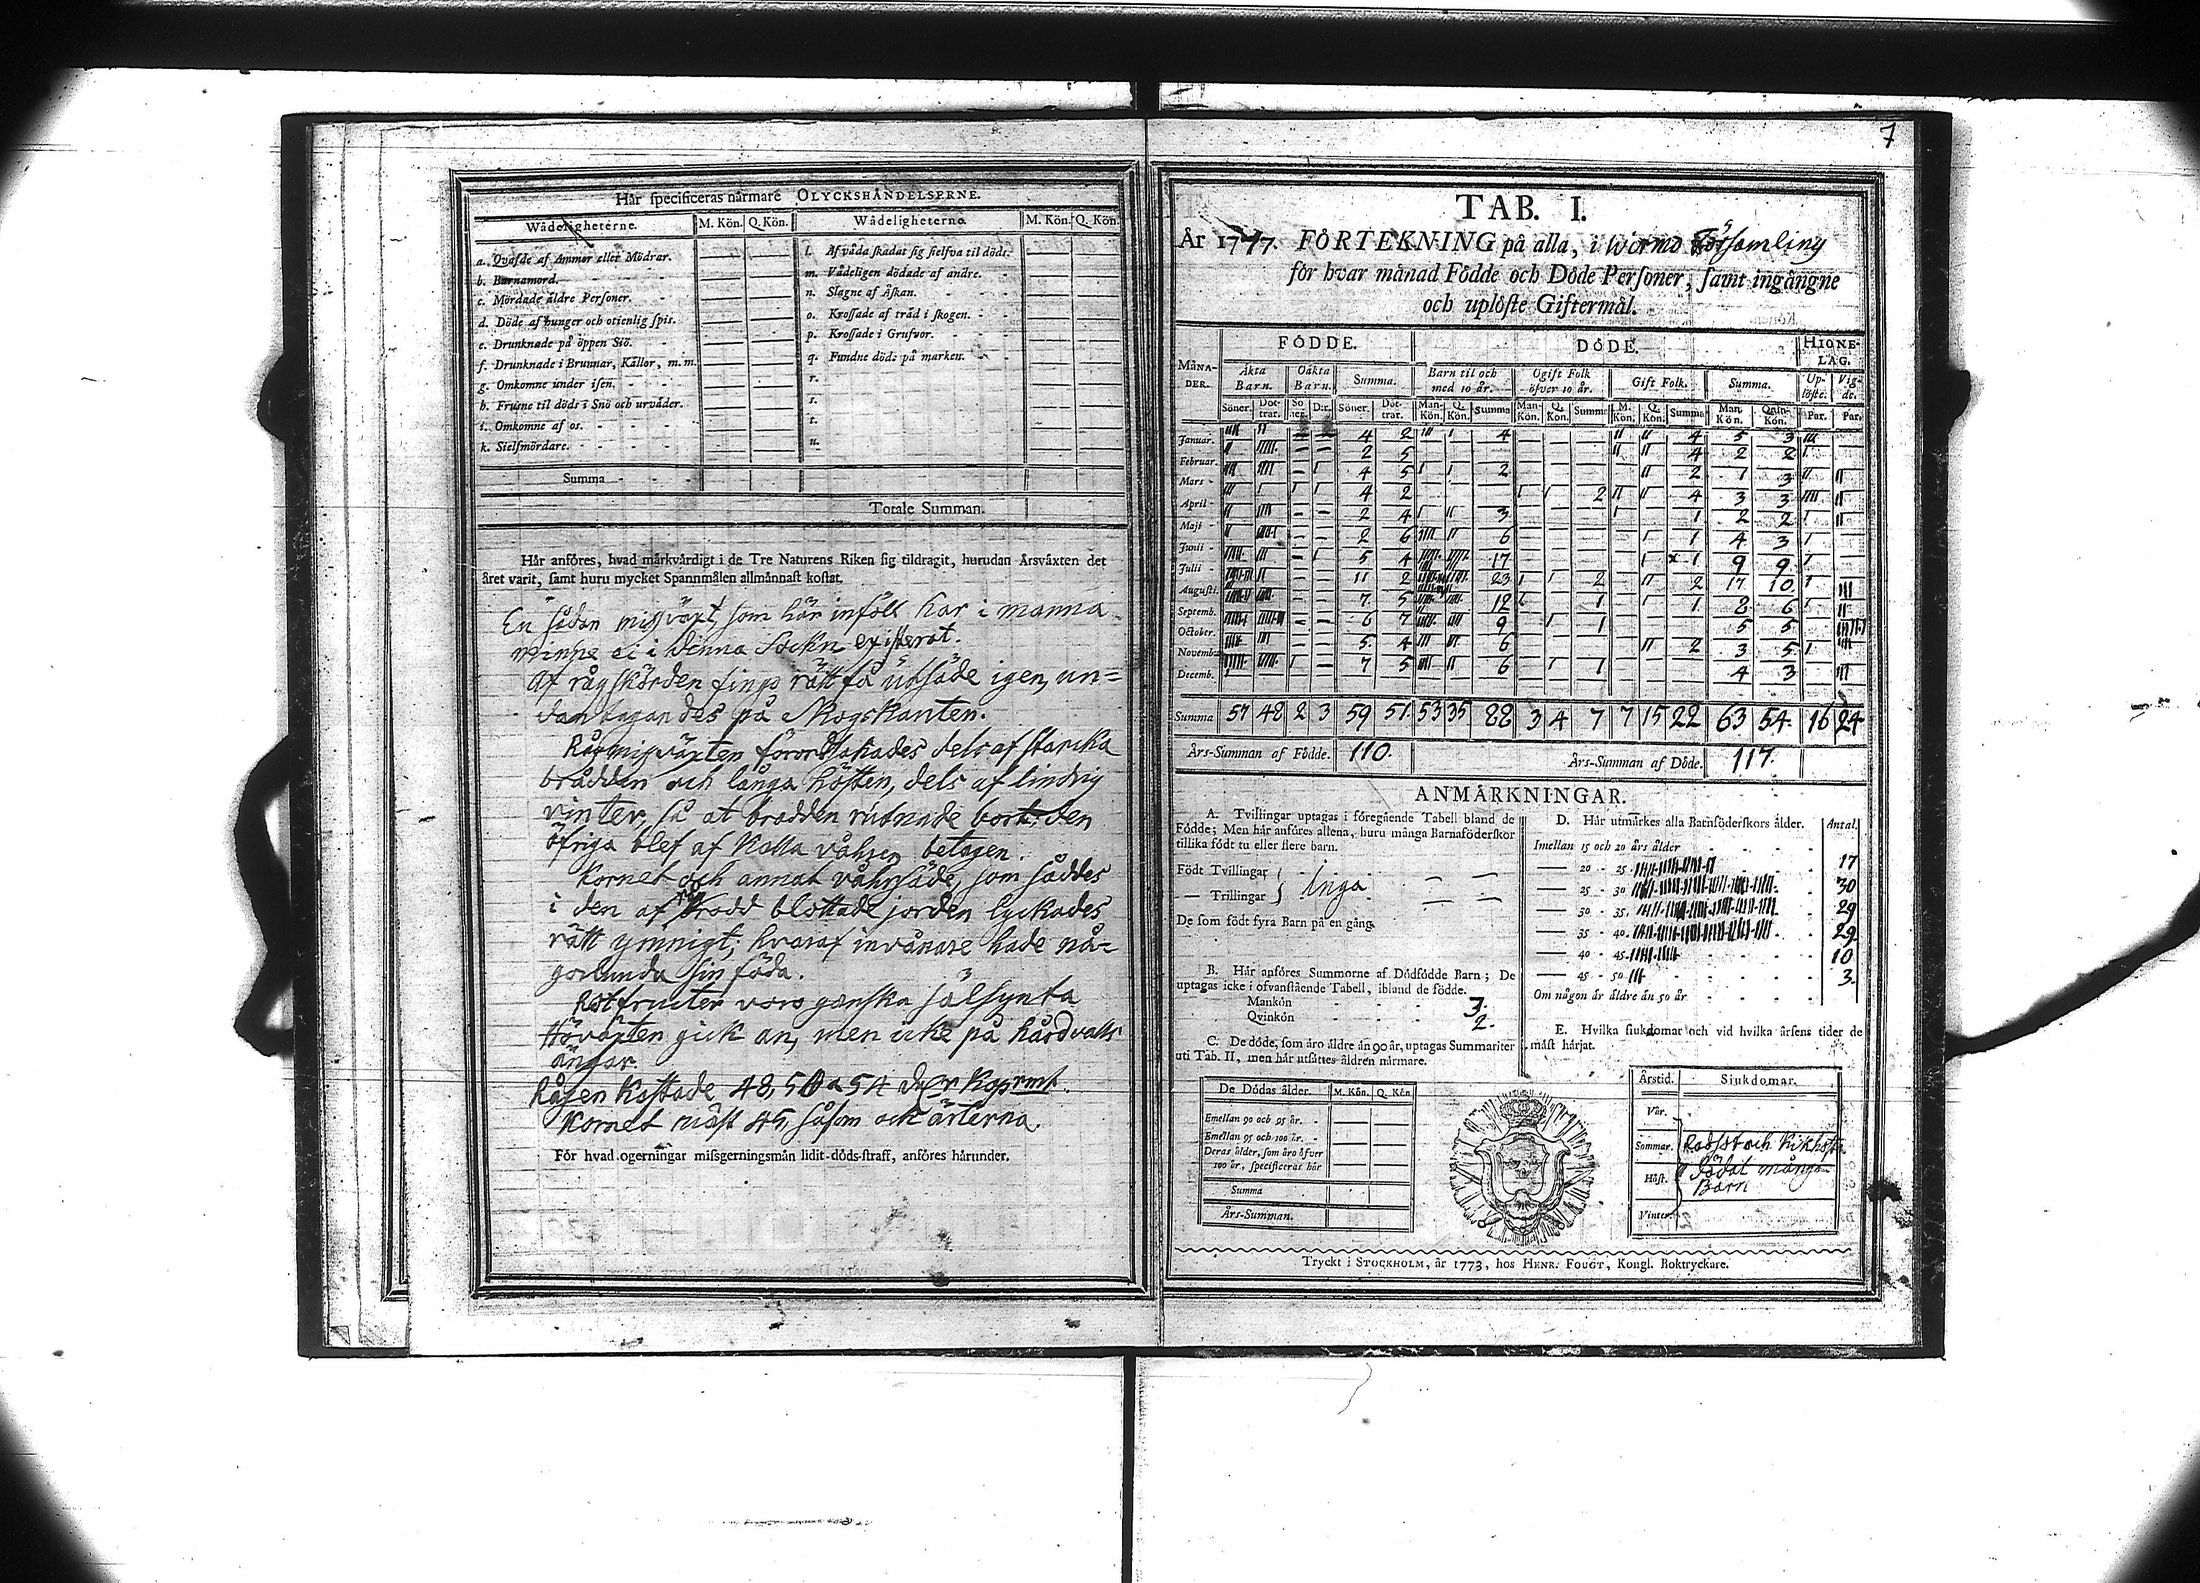 Här specificeras närmare OLYCKSHÄNDELSERNE.
Wådeligheterne. M. Kön. Q. Kön. Wådeligheterne. M. Kön. Q. Kön.
a. Qväfde af Ammor eller Mödrar.
b. Barnamord.
c. Mördade äldre Personer.
d. Döde af hunger och otienlig spis.
e. Drunknade på öppen Siö.
f. Drunknade i Brunnar, Källor, m. m.
g. Omkomne under isen.
h. Frusne til döds i Snö och urväder.
i. Omkomne af os.
k. Sielfmördare.
l. Af våda skadat sig sielfva til döds.
m. Vådeligen dödade af andre.
n. Slagne af Åskan.
o. Krossade af träd i skogen.
p. Krossade i Grufvor.
q. Fundne döde på marken.
r.
s.
t.
u.
Summa
Totale Summan.
Här anföres, hvad märkvärdigt i de Tre Naturens Riken sig tildragit, hurudan Årsväxten det
året varit, samt huru mycket Spannmålen allmännast kostat.
En sådan missväxt, som här inföll har i manna
minne ei i denna Sockn existerat.
Af rågskörden fingo rätt få utsäde igen, un=
dantagandes på Skogskanten.
Rågmissväxten förordsakades dels af starcka
brådden och långa hösten, dels af lindrig
vinter, så at brodden rutnade bort, den
öfriga blef af kalla våhren betagen.
Kornet och annat våhrsäde, som såddes
i den af brodd blottade jorden lyckades
rätt ymnigt; hvaraf invånare hade nå=
gorlunda sin föda.
Rotfruckter voro ganska sälsynta
Höväxten gick an, men icke på hårdvalls
ängar.
Rågen kostade 48, 50 a 54 dlr kopmt.
Kornet näst 45, såsom ock ärterna.
För hvad ogerningar missgerningsmän lidit döds-straff, anföres härunder.
7
TAB. I.
År 1777. FÖRTEKNING på alla, i Församling
för hvar månad Födde och Döde Personer, samt ingångne
och uplöste Giftermål.
MÅNADER. FÖDDE. DÖDE. HIONELAG.
Äkta Barn. Oäkta Barn. Summa. Barn til och med 10 år. Ogift Folk öfver 10 år. Gift Folk. Summa. Uplöste. Vigde.
Söner. Döttrar. Söner. D:r. Söner. Döttrar. Man-Kön. Q. Kön. Summa Man-Kön. Q. Kön. Summa M. Kön. Q. Kön. Summa Man-Kön. Qvin-Kön. Par. Par.
Januar. 4 2 4 4 5 3
Februar. 2 5 4 2 2
Mars 4 5 2 2 1 3
April 4 2 2 4 3 3
Maji 2 4 3 1 2 2
Junii 2 6 6 1 4 3
Julii 5 4 17 1 9 9
Augusti. 11 2 23 2 2 17 10
Septemb. 7 5 12 1 1 8 6
October. 6 7 9 1 5 5
Novemb. 5 4 6 2 3 5
Decemb. 7 5 6 1 4 3
Summa 57 48 2 3 59 51 53 35 88 3 4 7 7 15 22 63 54 16 24
Års-Summan af Födde. 110. Års-Summan af Döde. 117.
ANMÄRKNINGAR.
A. Tvillingar uptagas i föregående Tabell bland de
Födde; Men här anföres allena, huru många Barnaföderskor
tillika födt tu eller flere barn.
Födt Tvillingar
— Trillingar } Inga
De som födt fyra Barn på en gång.
B. Här anföres Summorne af Dödfödde Barn; De
uptagas icke i ofvanstående Tabell, ibland de födde.
Mankön 3.
Qvinkön 2.
C. De döde, som äro äldre än 90 år, uptagas Summariter
uti Tab. II, men här utsättes åldren närmare.
De Dödas ålder. M. Kön. Q. Kön
Emellan 90 och 95 år.
Emellan 95 och 100 år.
Deras ålder, som äro öfver
100 år, specificeras här
Summa
Års-Summan.
D. Här utmärkes alla Barnföderskors ålder. Antal.
Imellan 15 och 20 års ålder
— 20 - 25 17
— 25 - 30 30
— 30 - 35. 29
— 35 - 40. 29
— 40 - 45 10
— 45 - 50 3.
Om någon är äldre än 50 år
E. Hvilka siukdomar och vid hvilka årsens tider de
mäst härjat.
Årstid. Siukdomar.
Vår.
Sommar. Rödsot och kikhosta
Höst. dödat många
Barn
Vinter.
Tryckt i STOCKHOLM, år 1773, hos HENR. FOUGT, Kongl. Boktryckare.